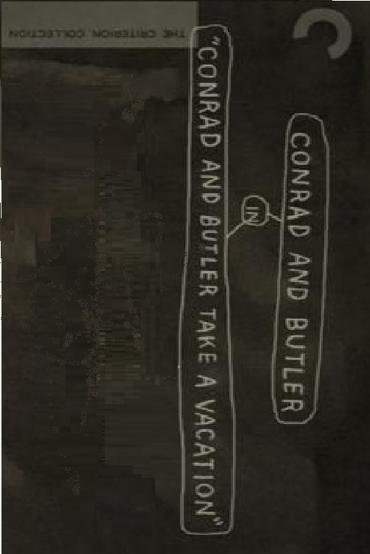 THE CRITERION COLLECTION
CONRAD AND BUTLER
IN
"CONRAD AND BUTLER TAKE A VACATION"